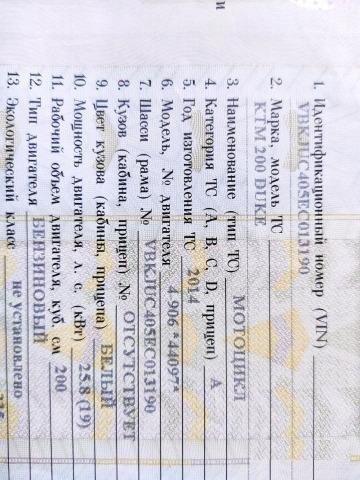 1. Идентификационный номер (VIN)
VBKJUC405EC013190
2. Марка, модель ТС
KTM 200 DUKE
3. Наименование (тип ТС) МОТОЦИКЛ
4. Категория ТС (A, B, C, D, прицеп) A
5 Год изготовления ТС 2014
6. Модель, № двигателя 4-906 *44097*
7. Шасси (рама) № VBKJUC405EC013190
8. Кузов (кабина, прицеп) № ОТСУТСТВУЕТ
9. Цвет кузова (кабины, прицепа) БЕЛЫЙ
10. Мощность двигателя, л. с. (кВт) 25.8 (19)
11. Рабочий объем двигателя, куб. см 200
12. Тип двигателя БЕНЗИНОВЫЙ
13. Экологический класс не установлено
и